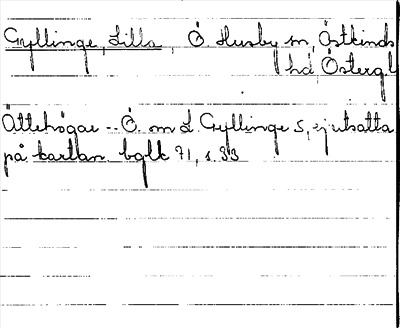 Gyllinge, Lilla, Ö. Husby sn, Östkinds
hd, Östergl
Ättehögar -- Ö. om L. Gyllinge S, ej utsatta
på kartan bglk 71, s. 33